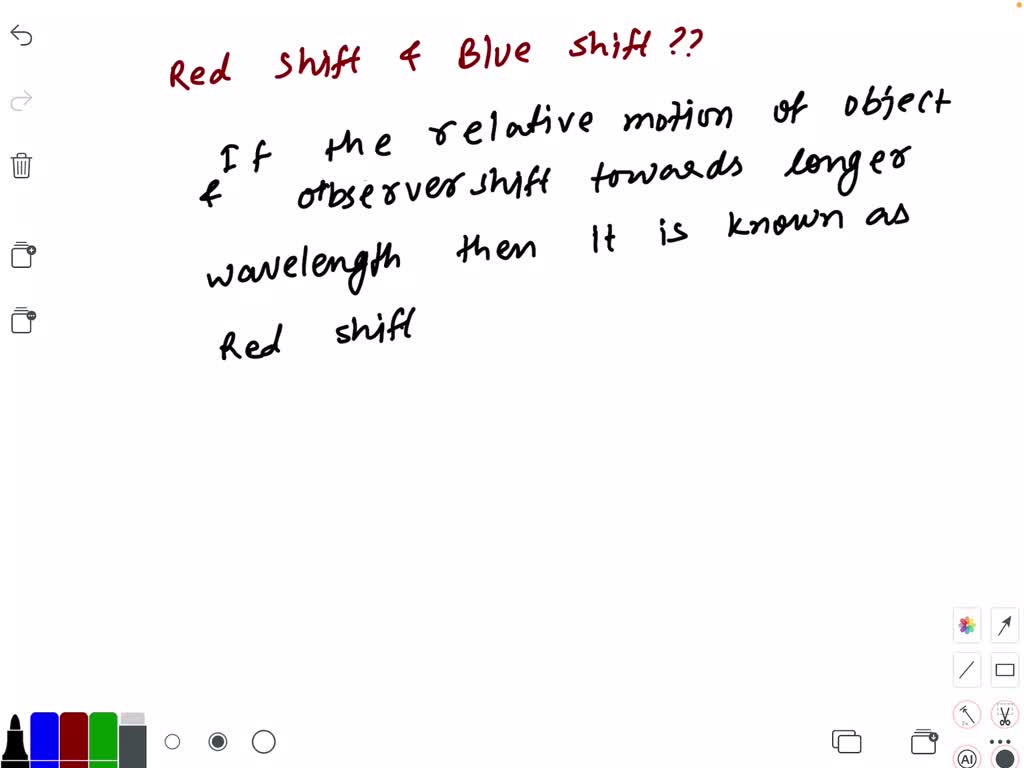 Red shift & Blue shift ??
If the relative motion of object
& observer shift towards longer
wavelength then It is known as
Red shift
AI